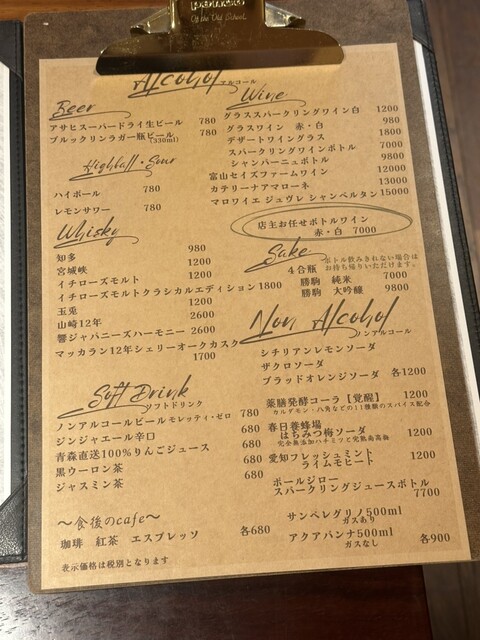 Of the Old School.
Alcohol アルコール
Beer
アサヒスーパードライ生ビール 780
ブルックリンラガー瓶ビール 780
(330ml)
Highball・Sour
ハイボール 780
レモンサワー 780
Whisky
知多 980
宮城峡 1200
イチローズモルト 1200
イチローズモルトクラシカルエディション 1800
玉兎 1200
山崎12年 2600
響ジャパニーズハーモニー 2600
マッカラン12年シェリーオークカスク
1700
Soft Drink
ソフトドリンク
ノンアルコールビール モレッティ・ゼロ 780
ジンジャエール辛口 680
青森直送100%りんごジュース 680
黒ウーロン茶 680
ジャスミン茶 680
～食後のcafe～
珈琲 紅茶 エスプレッソ 各680
表示価格は税別となります
Wine
グラススパークリングワイン白 1200
グラスワイン 赤・白 980
デザートワイングラス 1800
スパークリングワインボトル 7000
シャンパーニュボトル 9800
富山セイズファームワイン 12000
カテリーナアマローネ 13000
マロワイエ ジュヴレ シャンベルタン 15000
店主お任せボトルワイン
赤・白 7000
Sake
ボトル飲みきれない場合は
お持ち帰りいただけます。
4合瓶
勝駒 純米 7000
勝駒 大吟醸 9800
Non Alcohol
ノンアルコール
シチリアンレモンソーダ
ザクロソーダ
ブラッドオレンジソーダ 各1200
薬膳発酵コーラ【覚醒】 1200
カルダモン・八角などの11種類のスパイス配合
春日養蜂場
はちみつ梅ソーダ 1200
完全無添加ハチミツと完熟南高梅
愛知フレッシュミント
ライムモヒート 1200
ポールジロー
スパークリングジュースボトル
7700
サンペレグリノ500ml
ガスあり
アクアパンナ500ml
ガスなし 各900